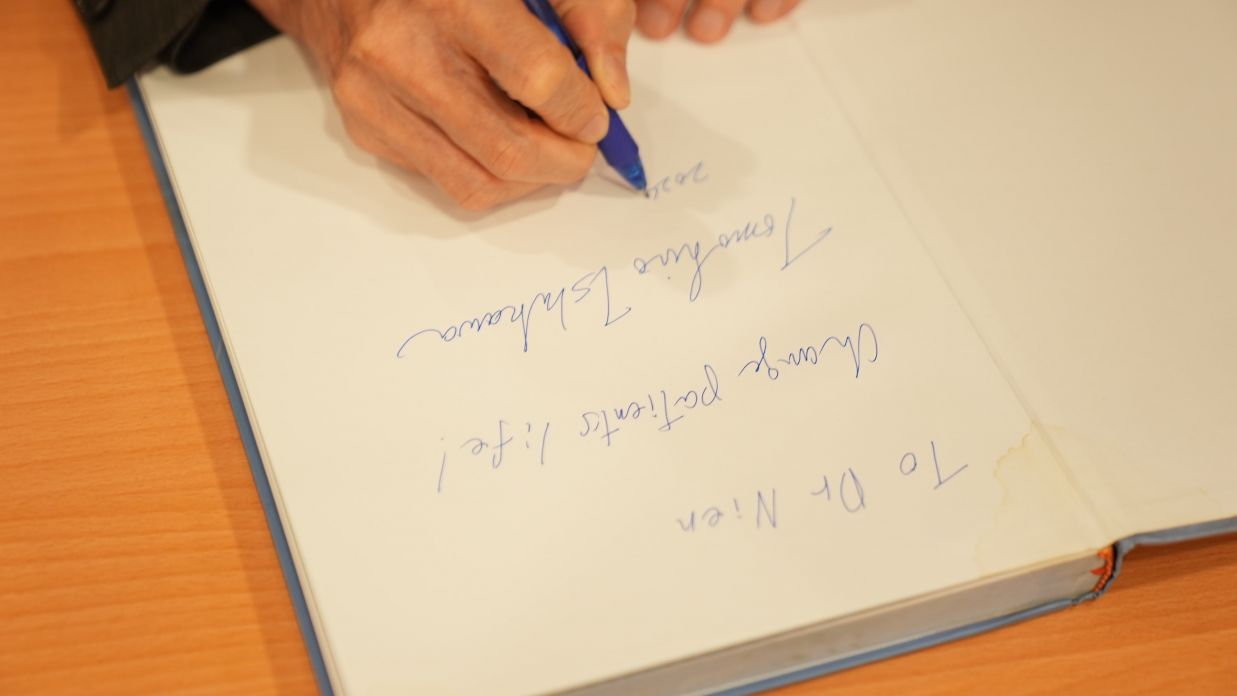 To Dr Nien
Change patients life!
Tomohiro Ishikawa
2024